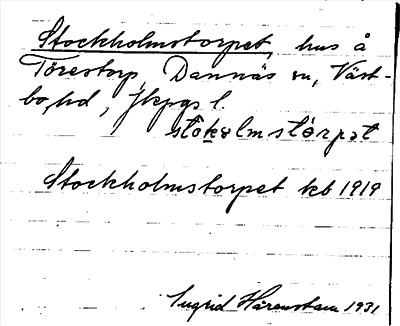 Stockholmstorpet, hus å
Törestorp, Dannäs sn, Väst-
bo hd, Jkpgs l.
stokolmstorpet
Stockholmstorpet kb 1919
Ingrid Härenstam 1931